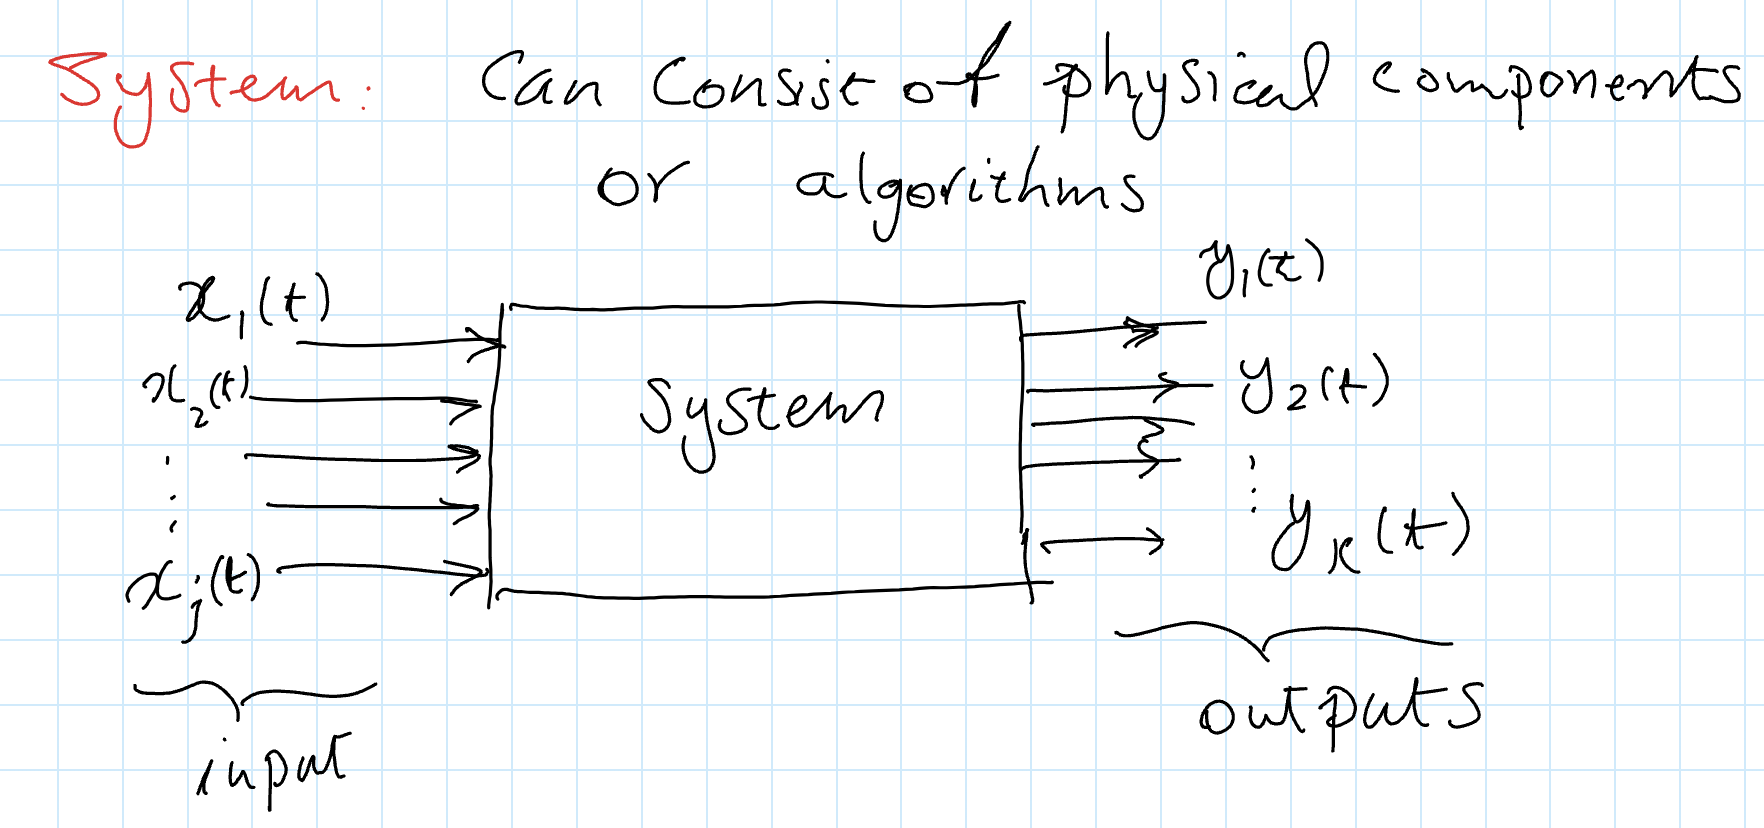 System: Can consist of physical components
or algorithms
x₁(t)
x₂(t)
⋮
xⱼ(t)
input
System
y₁(t)
y₂(t)
⋮
yₖ(t)
outputs